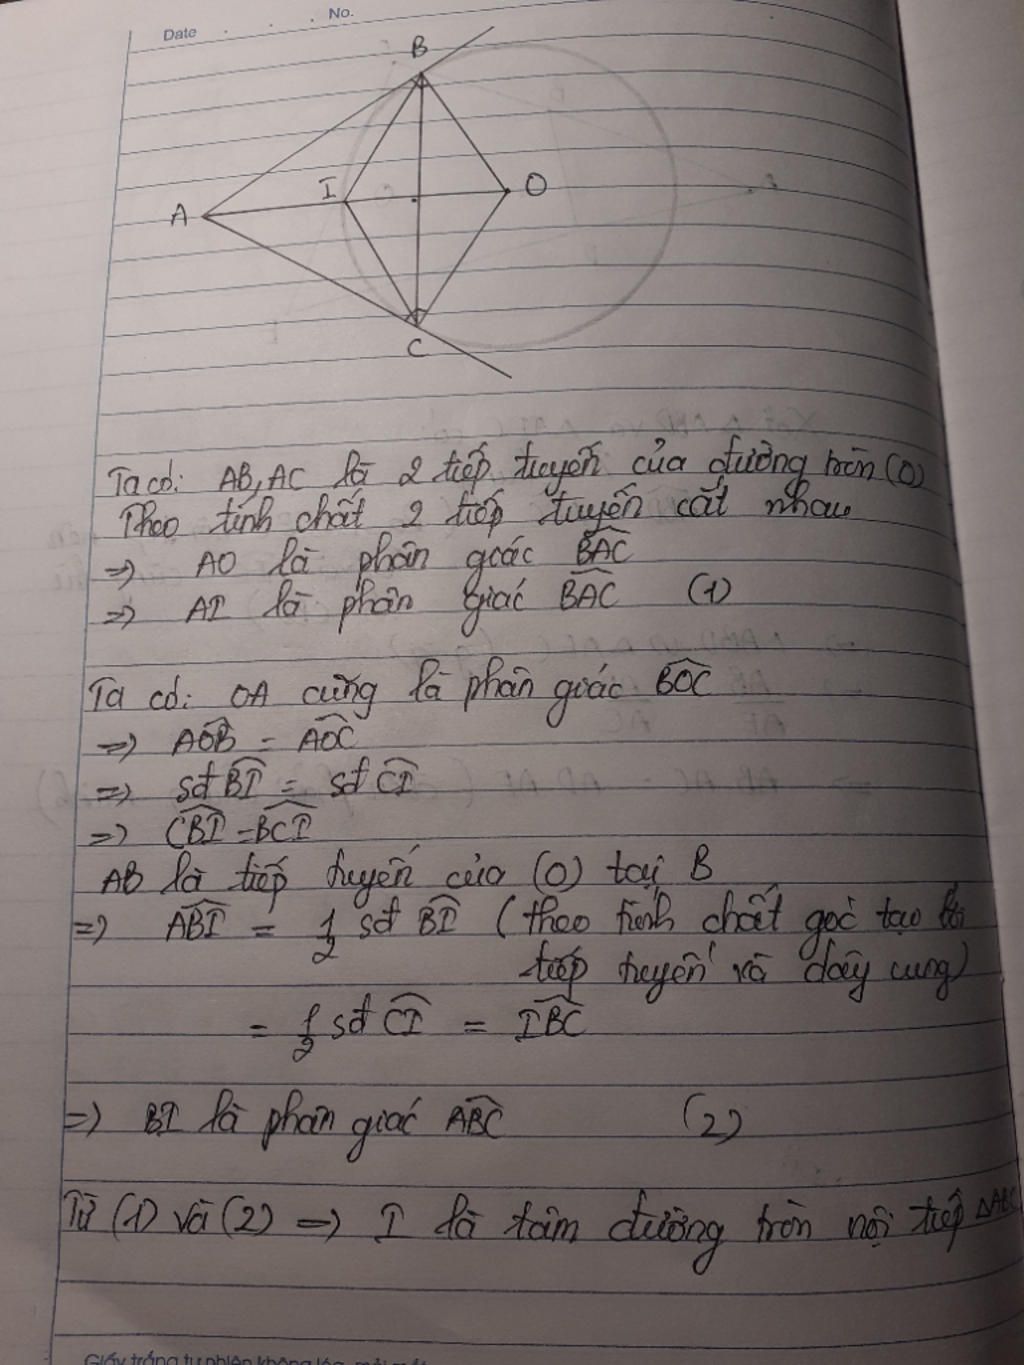 Date . . . No.
B
A
I
O
C
Ta có: AB, AC là 2 tiếp tuyến của đường tròn (O)
Theo tính chất 2 tiếp tuyến cắt nhau
=> AO là phân giác BAC
=> AI là phân giác BAC (1)
Ta có: OA cũng là phân giác BOC
=> AOB = AOC
=> sđ BI = sđ CI
=> CBI = BCI
AB là tiếp tuyến của (O) tại B
=> ABI = 1/2 sđ BI (theo tính chất góc tạo bởi
tiếp tuyến và dây cung)
= 1/2 sđ CI = IBC
=> BI là phân giác ABC (2)
Từ (1) và (2) => I là tâm đường tròn nội tiếp ΔABC